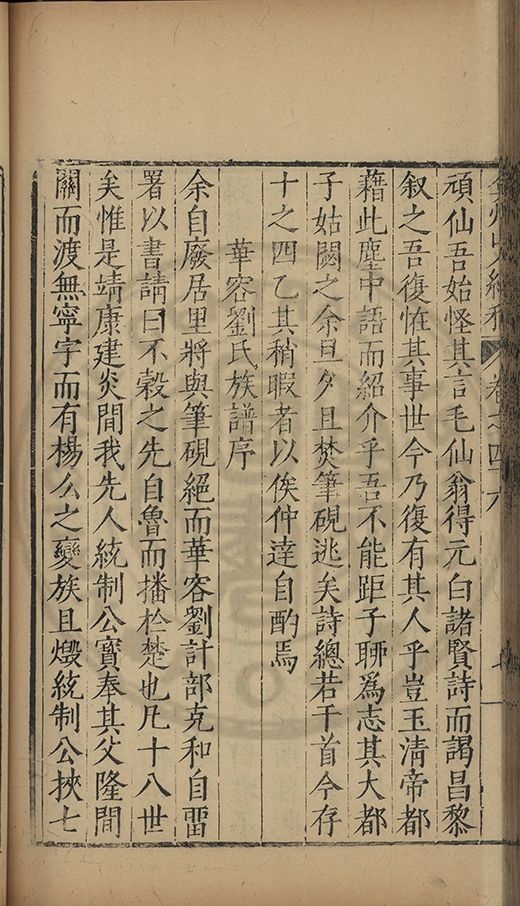 弇州史續稿 卷之四六
頑仙吾始怪其言毛仙翁得元白諸賢詩而謁昌黎
叙之吾復恠其事世今乃復有其人乎豈玉清帝都
藉此塵中語而紹介乎吾不能距子聊爲志其大都
子姑闕之余旦夕且焚筆硯逃矣詩總若干首今存
十之四乙其稍暇者以俟仲達自酌焉
華容劉氏族譜序
余自廢居里將與筆硯絕而華容劉計部克和自畱
署以書請曰不穀之先自魯而播於楚也凡十八世
矣惟是靖康建炎間我先人統制公寳奉其父隆間
關而渡無寧宇而有楊么之變族且燬統制公挾七